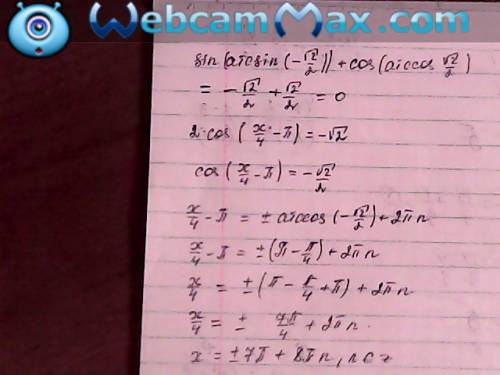 WebcamMax.com
sin(arcsin(-√2/2)) + cos(arccos √2/2)
= -√2/2 + √2/2 = 0
2·cos (x/4 - π) = -√2
cos (x/4 - π) = -√2/2
x/4 - π = ± arccos (-√2/2) + 2πn
x/4 - π = ± (π - π/4) + 2πn
x/4 = ± (π - π/4 + π) + 2πn
x/4 = ± 7π/4 + 2πn.
x = ± 7π + 8πn, n ∈ z